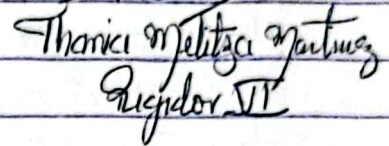 Thania Melitza Martinez
Regidor VI